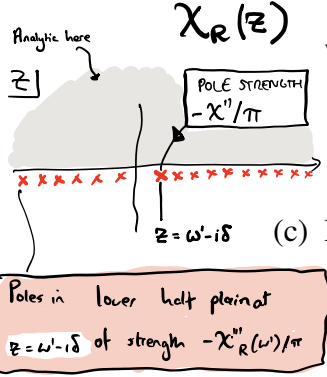 χ_R(z)
Analytic here
z
POLE STRENGTH
-χ"/π
z = ω'-iδ
(c)
Poles in lower half plain at
z = ω'-iδ of strength -χ"_R(ω')/π